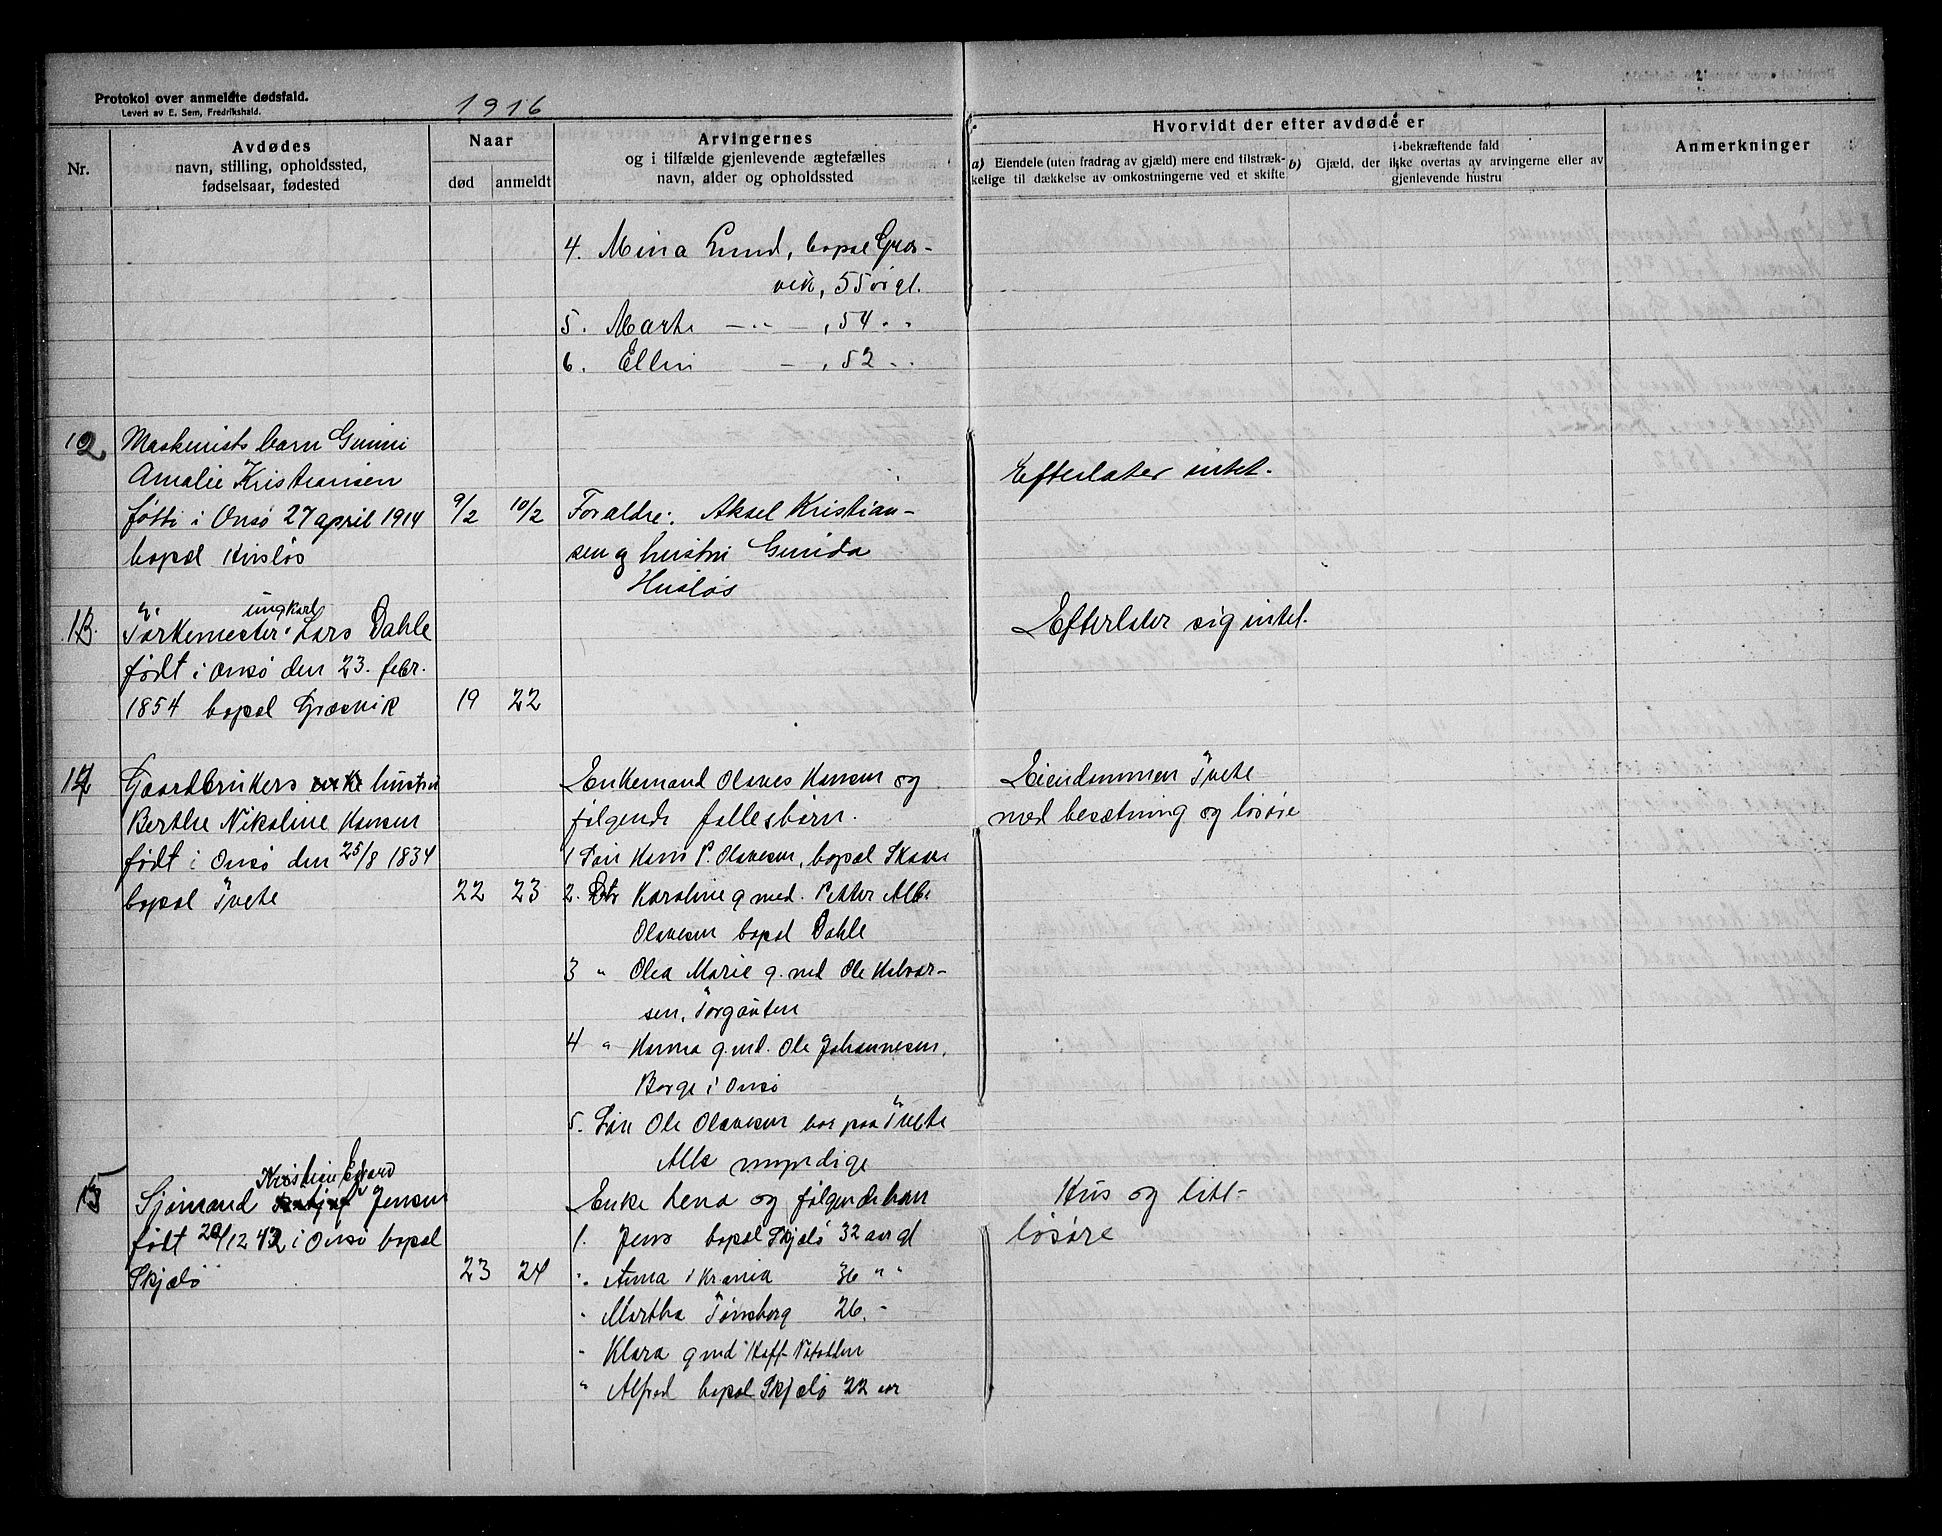 Protokol over anmeldte dødsfald.
Levert av E. Sem, Fredrikshald.
1916
2
Nr.
Avdødes
navn, stilling, opholdssted,
fødselsaar, fødested
Naar
død
anmeldt
Arvingernes
og i tilfælde gjenlevende ægtefælles
navn, alder og opholdssted
Hvorvidt der efter avdøde er
a) Eiendele (uten fradrag av gjæld) mere end tilstræk-
kelige til dækkelse av omkostningerne ved et skifte
i bekræftende fald
b) Gjæld, der ikke overtas av arvingerne eller av
gjenlevende hustru
Anmerkninger
4. Mina Lund, bopæl Græs-
vik, 55 år gl.
5. Marte — " — , 54 " "
6. Ellen — , 52 " "
12
Maskinists barn Gunni
Amalie Kristiansen
født i Onsø 27 april 1914
bopæl Husløs
9/2 10/2
Foraldre: Aksel Kristian-
sen og hustru Gunida
Husløs
Efterlater intet.
13.
ungkarl
Tørkemester Lars Dahle
født i Onsø den 23. febr.
1854 bopæl Græsvik
19 22
Efterlater sig intet.
14
Gaardbrukers enke hustru
Berthe Nikoline Hansen
født i Onsø den 25/8 1834
bopæl Tvete
22 23
Enkemand Olaves Hansen og
følgende fællesbørn.
1 Søn Hans P. Olavesen, bopæl Skaar
2. Dtr Karoline g med. Petter Alb.
Olavesen bopæl Dahle
3 " Olea Marie g. md Ole Halvor-
sen, Torgauten
4 " Hanna g. md. Ole Johannesen,
Borge i Onsø
5. Søn Ole Olavesen bor paa Tvete
Alle myndige
Eiendommen Tvete
med besætning og løsøre
15
Kristian Edvard
Sjømand Jensen
født 20/12 42 i Onsø bopæl
Skjælø
23 24
Enke Lena og følgende barn
1. Jens bopæl Skjælø 32 aar gl
" Anna i Krania 36 " "
" Martha Tønsberg 26. "
" Klara g md Hoff
" Alfred bopæl Skjælø 22 aar
Hus og litt
løsøre